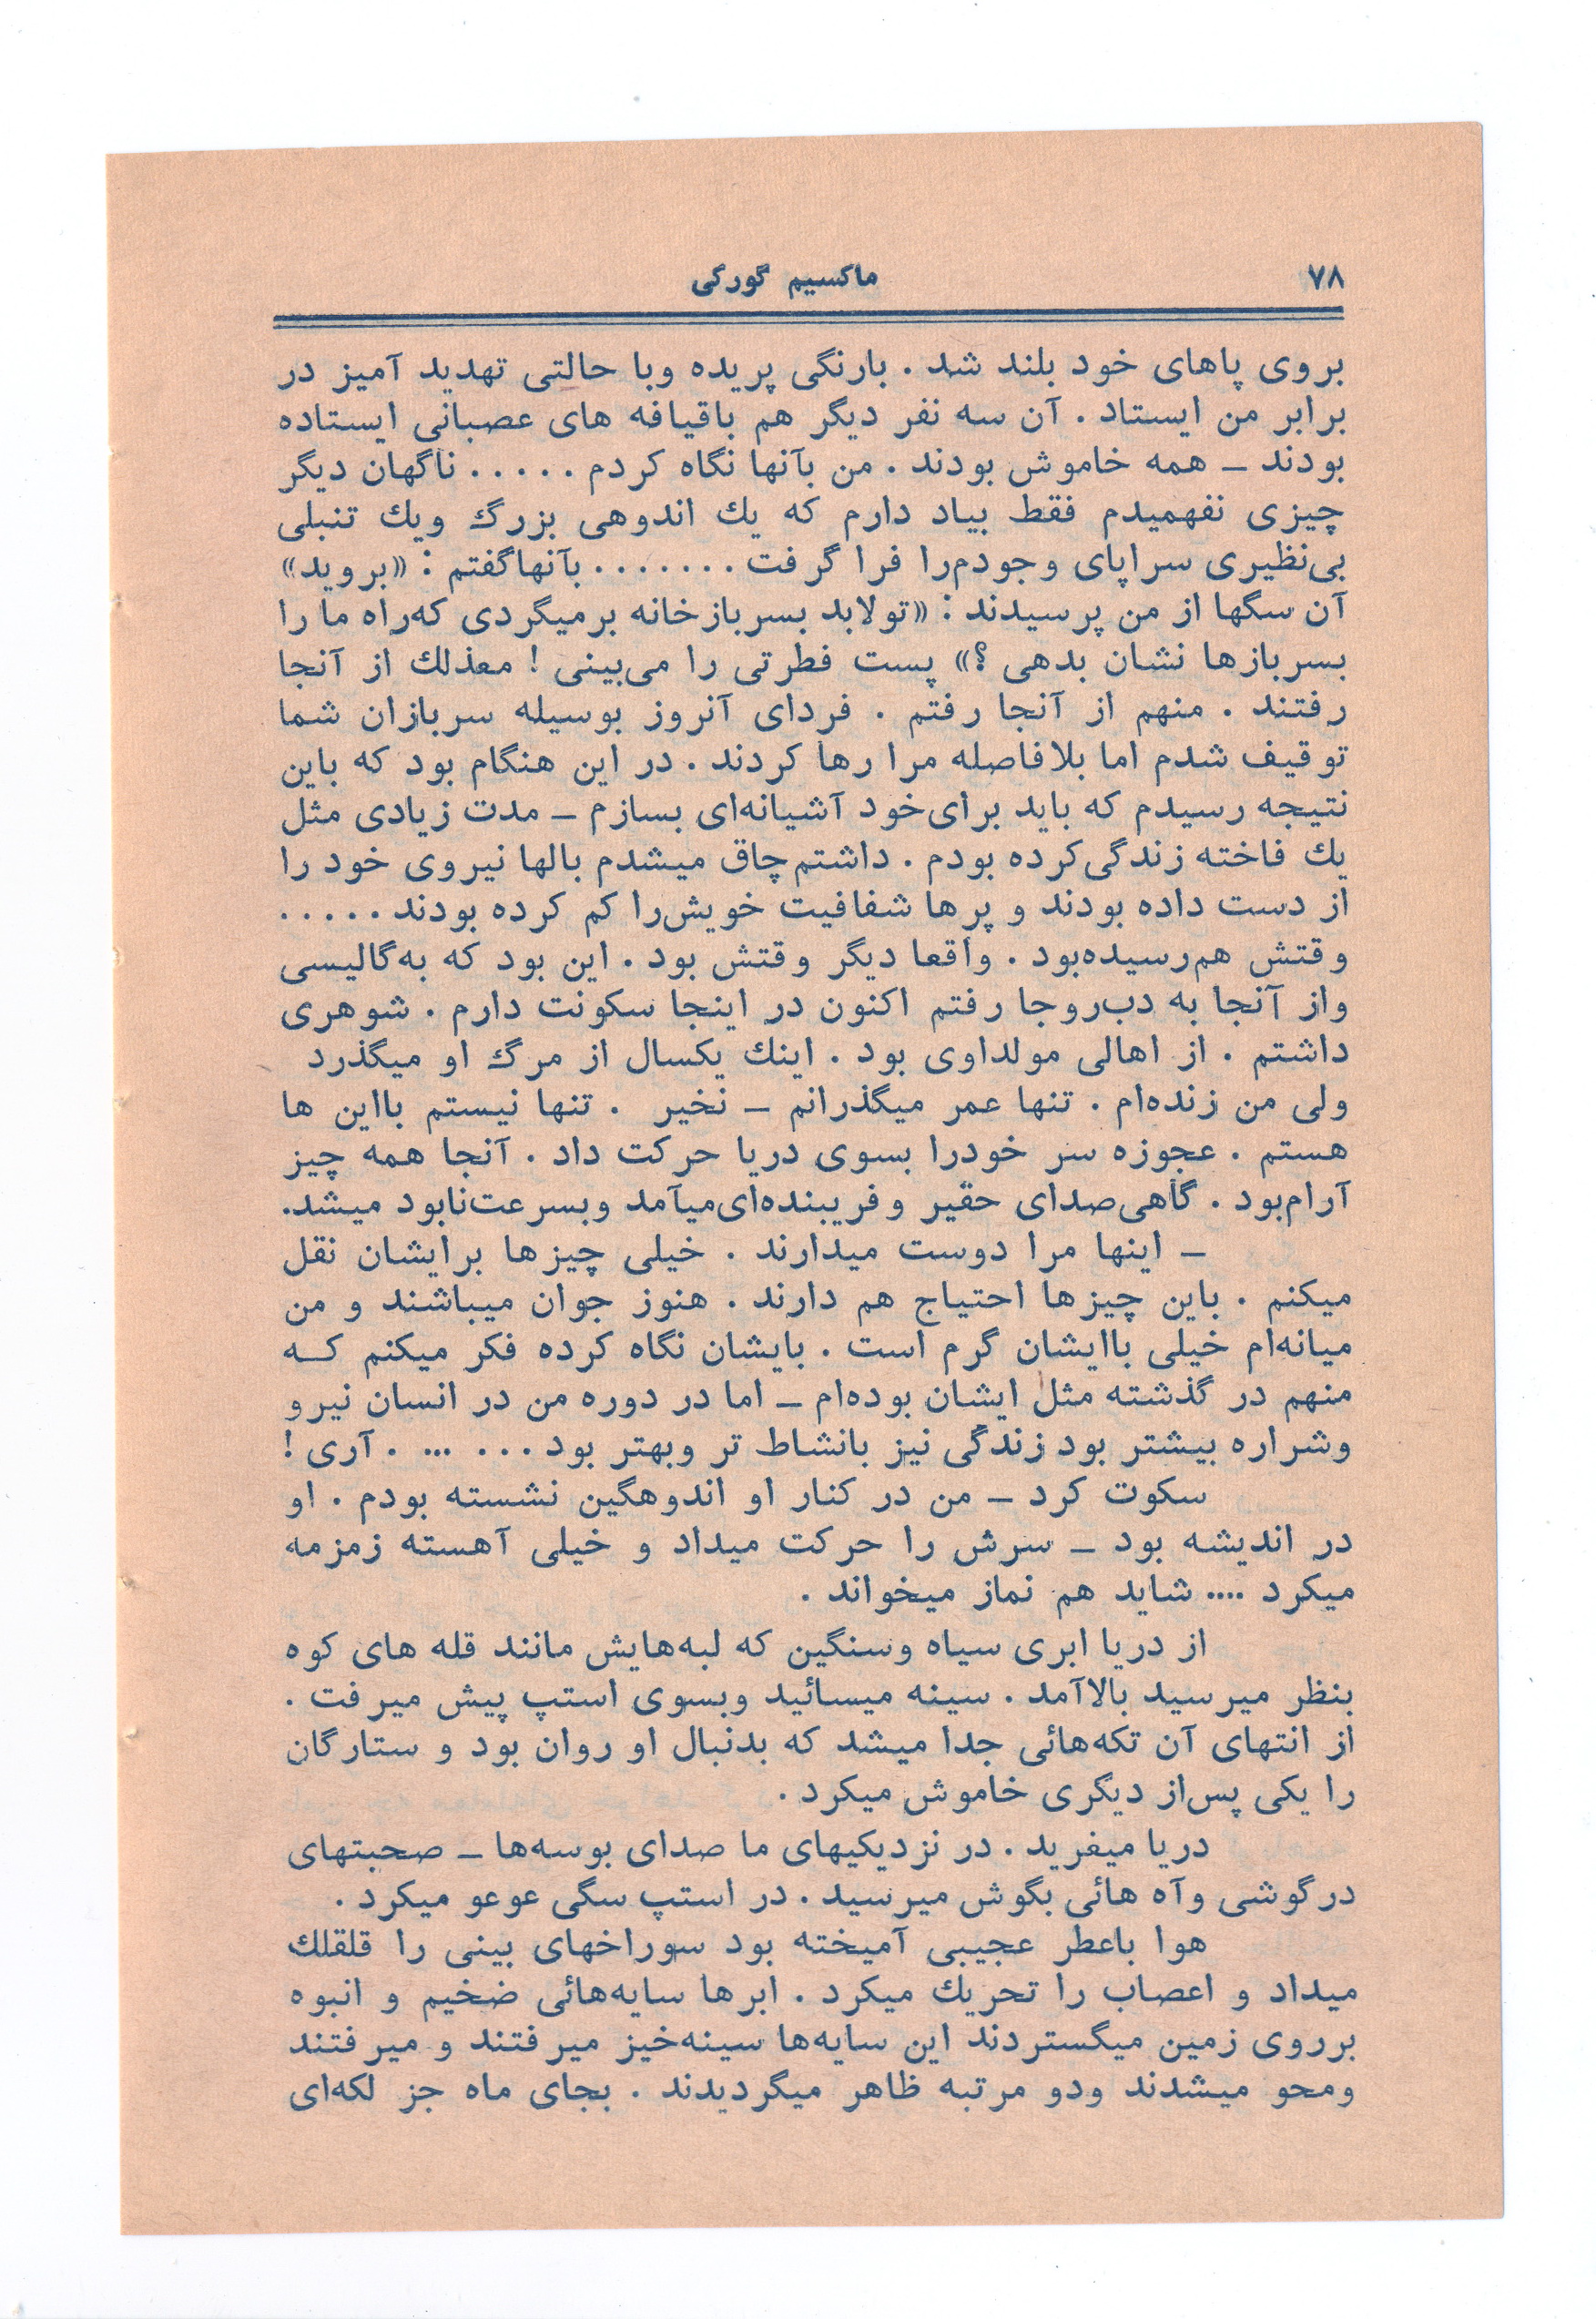 ۷۸
ماکسیم گورکی
بروی پاهای خود بلند شد . بارنگی پریده وبا حالتی تهدید آمیز در
برابر من ایستاد . آن سه نفر دیگر هم باقیافه های عصبانی ایستاده
بودند – همه خاموش بودند . من بآنها نگاه کردم . . . . . ناگهان دیگر
چیزی نفهمیدم فقط بیاد دارم که یك اندوهی بزرگ ویك تنبلی
بی‌نظیری سراپای وجودم‌را فرا گرفت . . . . . . . بآنهاگفتم : «بروید»
آن سگها از من پرسیدند : «تولابد بسربازخانه برمیگردی که‌راه ما را
بسربازها نشان بدهی ؟» پست فطرتی را می‌بینی ! معذلك از آنجا
رفتند . منهم از آنجا رفتم . فردای آنروز بوسیله سربازان شما
توقیف شدم اما بلافاصله مرا رها کردند . در این هنگام بود که باین
نتیجه رسیدم که باید برای‌خود آشیانه‌ای بسازم – مدت زیادی مثل
یك فاخته زندگی‌کرده بودم . داشتم‌چاق میشدم بالها نیروی خود را
از دست داده بودند و پرها شفافیت خویش‌را کم کرده بودند . . . . .
وقتش هم‌رسیده‌بود . واقعا دیگر وقتش بود . این بود که به‌گالیسی
واز آنجا به دب‌روجا رفتم اکنون در اینجا سکونت دارم . شوهری
داشتم . از اهالی مولداوی بود . اینك یکسال از مرگ او میگذرد
ولی من زنده‌ام . تنها عمر میگذرانم – نخیر . تنها نیستم بااین ها
هستم . عجوزه سر خودرا بسوی دریا حرکت داد . آنجا همه چیز
آرام‌بود . گاهی‌صدای حقیر وفریبنده‌ای‌میآمد وبسرعت‌نابود میشد.
– اینها مرا دوست میدارند . خیلی چیزها برایشان نقل
میکنم . باین چیزها احتیاج هم دارند . هنوز جوان میباشند و من
میانه‌ام خیلی باایشان گرم است . بایشان نگاه کرده فکر میکنم کــه
منهم در گذشته مثل ایشان بوده‌ام – اما در دوره من در انسان نیرو
وشراره بیشتر بود زندگی نیز بانشاط تر وبهتر بود . . . ... . آری !
سکوت کرد – من در کنار او اندوهگین نشسته بودم . او
در اندیشه بود – سرش را حرکت میداد و خیلی آهسته زمزمه
میکرد .... شاید هم نماز میخواند .
از دریا ابری سیاه وسنگین که لبه‌هایش مانند قله های کوه
بنظر میرسید بالاآمد . سینه میسائید وبسوی استپ پیش میرفت .
از انتهای آن تکه‌هائی جدا میشد که بدنبال او روان بود و ستارگان
را یکی پس‌از دیگری خاموش میکرد .
دریا میفرید . در نزدیکیهای ما صدای بوسه‌ها – صحبتهای
درگوشی وآه هائی بگوش میرسید . در استپ سگی عوعو میکرد .
هوا باعطر عجیبی آمیخته بود سوراخهای بینی را قلقلك
میداد و اعصاب را تحریك میکرد . ابرها سایه‌هائی ضخیم و انبوه
برروی زمین میگستردند این سایه‌ها سینه‌خیز میرفتند و میرفتند
ومحو میشدند ودو مرتبه ظاهر میگردیدند . بجای ماه جز لکه‌ای